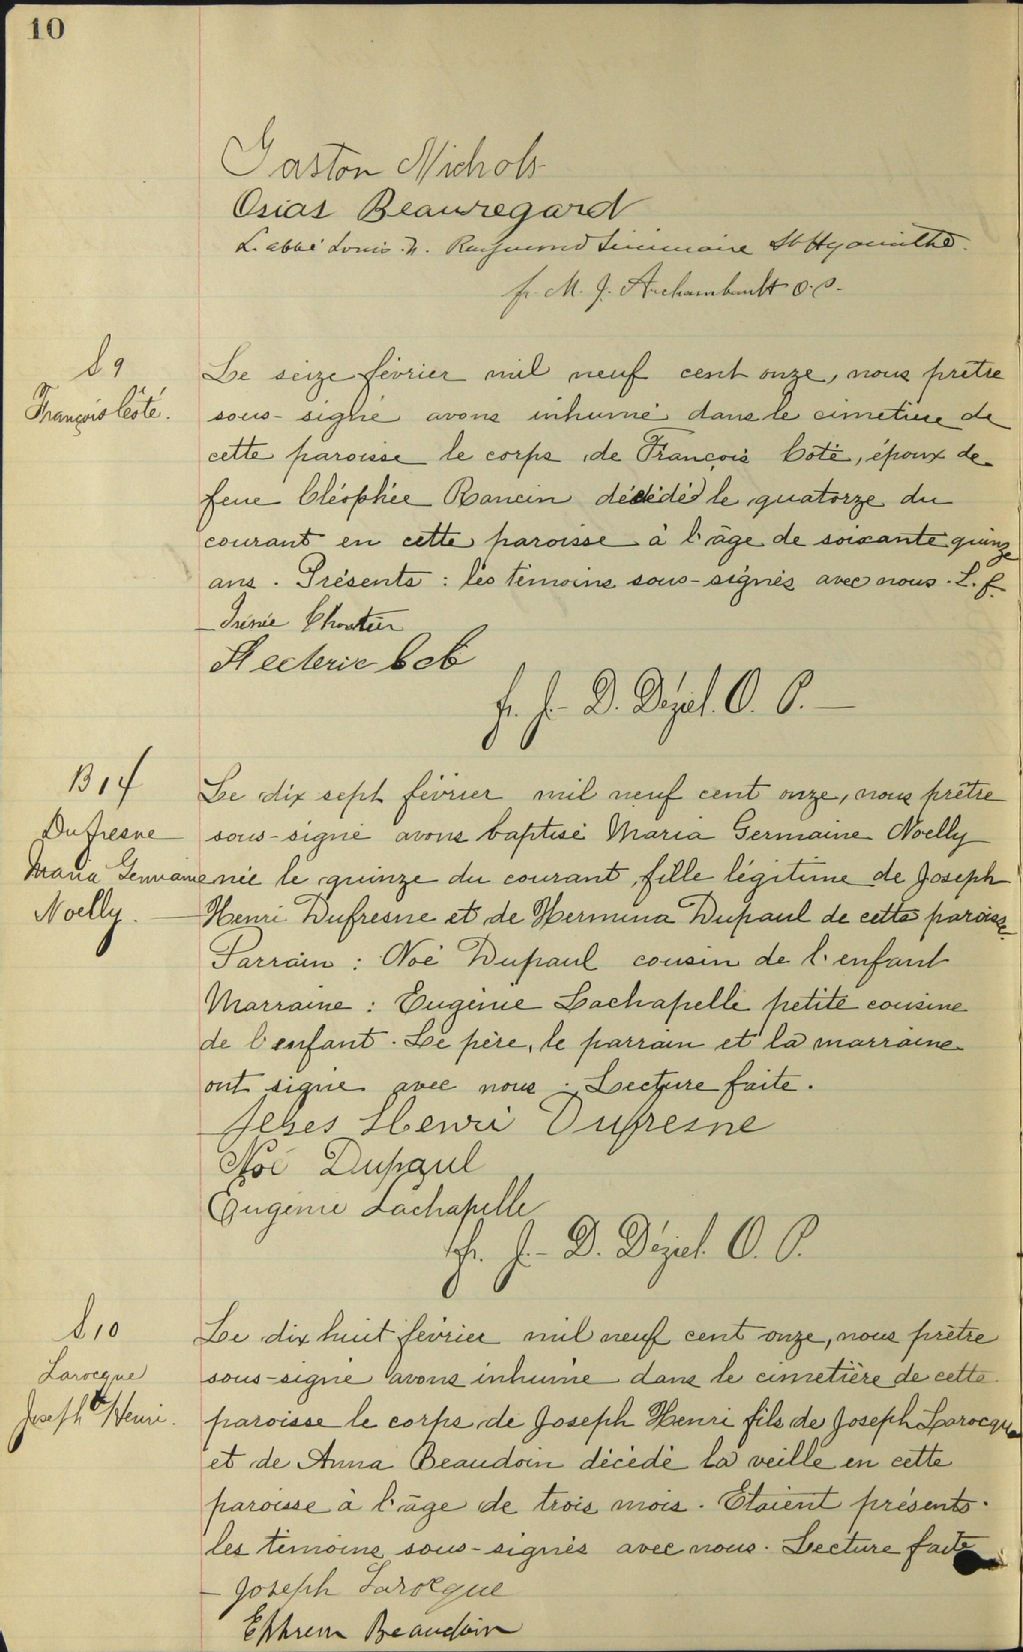 10
Gaston Nichols
Osias Beauregard
L. abbé Louis. N. Raymond Séminaire St Hyacinthe.
fr. M. J. Archambault O. P.
S 9
François Côté.
Le seize février mil neuf cent onze, nous prêtre
sous-signé avons inhumé dans le cimetière de
cette paroisse le corps de François Coté, époux de
feue Cléophée Rancin décédé le quatorze du
courant en cette paroisse à l'âge de soixante quinze
ans. Présents : les témoins sous-signés avec nous. L. f.
Irénée Chartier
Hecteric Coté
fr. J. - D. Déziel. O. P. —
B 14
Dufresne
Maria Germaine
Noelly.
Le dix sept février mil neuf cent onze, nous prêtre
sous-signé avons baptisé Maria Germaine Noelly
née le quinze du courant, fille légitime de Joseph
Henri Dufresne et de Hermina Dupaul de cette paroisse.
Parrain : Noé Dupaul cousin de l'enfant
Marraine : Eugénie Lachapelle petite cousine
de l'enfant. Le père, le parrain et la marraine
ont signé avec nous. Lecture faite.
Henri Dufresne
Noé Dupaul
Eugénie Lachapelle
fr. J. - D. Déziel. O. P.
S 10
Larocque
Joseph Henri.
Le dix huit février mil neuf cent onze, nous prêtre
sous-signé avons inhumé dans le cimetière de cette
paroisse le corps de Joseph Henri fils de Joseph Larocque
et de Anna Beaudoin décédé la veille en cette
paroisse à l'âge de trois mois. Etaient présents.
les témoins sous-signés avec nous. Lecture faite
Joseph Larocque
Ephrem Beaudoin